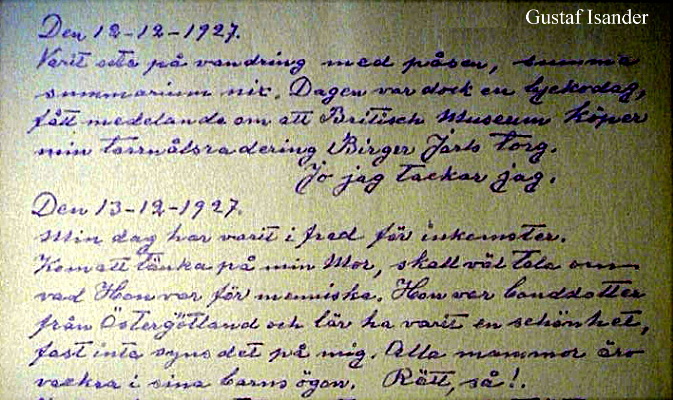 Gustaf Isander
Den 12-12-1927.
Varit ute på vandring med påsen, summa
summarium nix. Dagen var dock en lyckodag,
fått medelande om att Britisch Museum köper
min torrnålsradering Birger Jarls torg.
Jo jag tackar jag.
Den 13-12-1927.
Min dag har varit i fred för inkomster.
Kom att tänka på min Mor, skall väl tala om
vad Hon var för menniska. Hon var bonddotter
från Östergötland och lär ha varit en schönhet,
fast inta syns det på mig. Alla mammor äro
vackra i sina barns ögon. Rätt, så!.